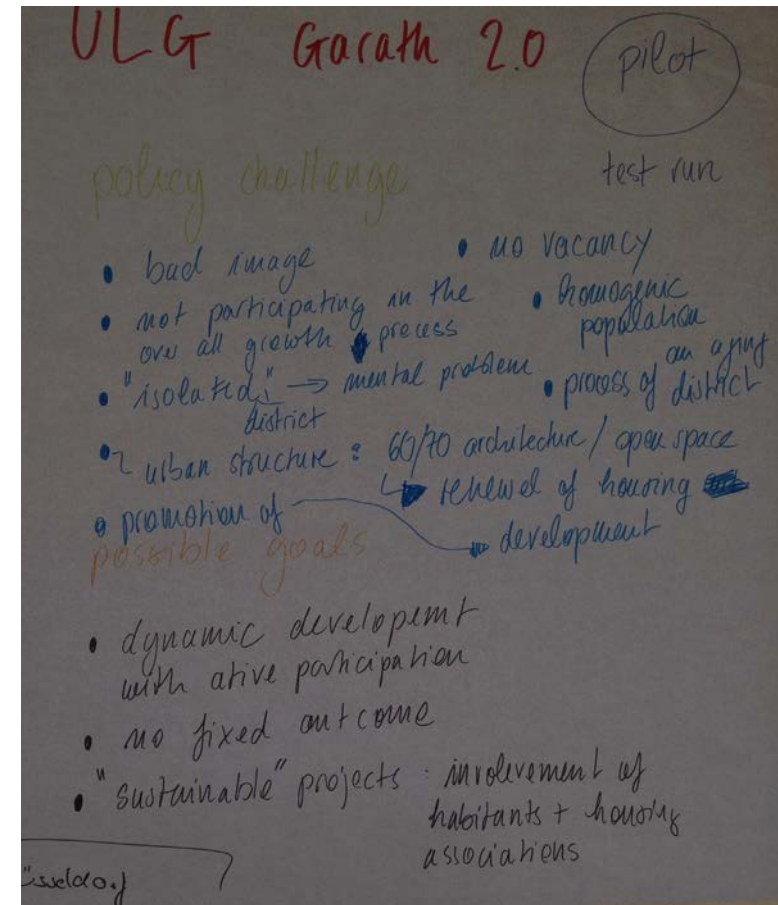 ULG Garath 2.0 pilot
test run
policy challenge
• bad image
• not participating in the
over all growth process
• "isolated" → mental problem
district
• urban structure : 60/70 architecture / open space
↳ renewel of housing
• promotion of → development
• no vacancy
• homogenic
population
• process of district
an aging
possible goals
• dynamic developemt
with ative participation
• no fixed outcome
• "sustainable" projects : involevement of
habitants + housing
associations